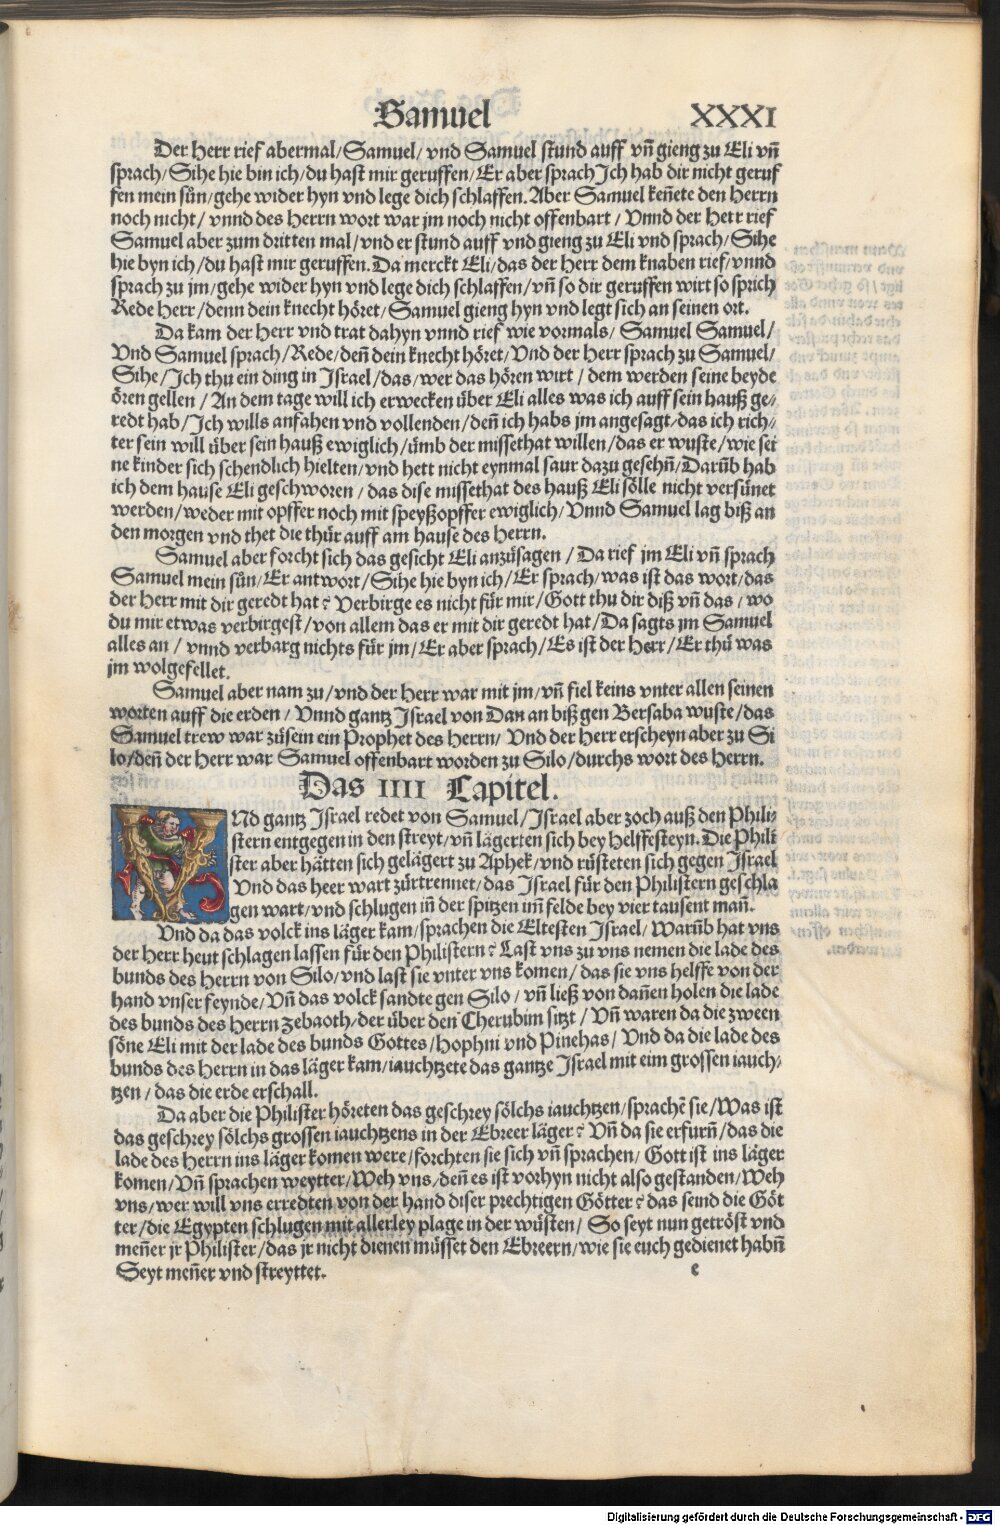 Samuel XXXI
Der Herr rief abermal/Samuel/ vnd Samuel stund auff vñ gieng zu Eli vñ
sprach/Sihe hie bin ich/du hast mir geruffen/Er aber sprach Ich hab dir nicht geruf
fen mein sün/gehe wider hyn vnd lege dich schlaffen. Aber Samuel keñete den Herrn
noch nicht/ vnnd des Herrn wort war jm noch nicht offenbart/ Vnnd der Herr rief
Samuel aber zum dritten mal/vnd er stund auff vnd gieng zu Eli vnd sprach/Sihe
hie byn ich/du hast mir geruffen. Da merckt Eli/das der Herr dem knaben rief/vnnd
sprach zu jm/gehe wider hyn vnd lege dich schlaffen/vñ so dir geruffen wirt so sprich
Rede Herr/denn dein knecht höret/Samuel gieng hyn vnd legt sich an seinen ort.
Da kam der Herr vnd trat dahyn vnnd rief wie vormals/ Samuel Samuel/
Vnd Samuel sprach/Rede/deñ dein knecht höret/Vnd der Herr sprach zu Samuel/
Sihe/Ich thu ein ding in Israel/das/wer das hören wirt/ dem werden seine beyde
ören gellen/ An dem tage will ich erwecken über Eli alles was ich auff sein hauß ge/
redt hab/Ich wills anfahen vnd vollenden/deñ ich habs jm angesagt/das ich rich/
ter sein will über sein hauß ewiglich/ümb der missethat willen/das er wuste/wie sei
ne kinder sich schendlich hielten/vnd hett nicht eynmal saur dazu gesehñ/Darüb hab
ich dem hause Eli geschworen/ das dise missethat des hauß Eli sölle nicht versünet
werden/weder mit opffer noch mit speyßopffer ewiglich/Vnnd Samuel lag biß an
den morgen vnd thet die thür auff am hause des Herrn.
Samuel aber forcht sich das gesicht Eli anzüsagen/ Da rief jm Eli vñ sprach
Samuel mein sün/Er antwort/Sihe hie byn ich/Er sprach/was ist das wort/das
der Herr mit dir geredt hat? Verbirge es nicht für mir/Gott thu dir diß vñ das/wo
du mir etwas verbirgest/von allem das er mit dir geredt hat/Da sagts jm Samuel
alles an/ vnnd verbarg nichts für jm/Er aber sprach/Es ist der Herr/Er thü was
jm wolgefellet.
Samuel aber nam zu/vnd der Herr war mit jm/vñ fiel keins vnter allen seinen
worten auff die erden/ Vnnd gantz Israel von Dan an biß gen Bersaba wuste/das
Samuel trew war züsein ein Prophet des Herrn/ Vnd der Herr erscheyn aber zu Si
lo/deñ der Herr war Samuel offenbart worden zu Silo/durchs wort des Herrn.
Das IIII Capitel.
VNd gantz Israel redet von Samuel/Israel aber zoch auß den Phili/
stern entgegen in den streyt/vñ lägerten sich bey Helffesteyn. Die Phili
ster aber hätten sich gelägert zu Aphek/vnd rüsteten sich gegen Israel
Vnd das heer wart zürtrennet/das Israel für den Philistern geschla
gen wart/vnd schlugen iñ der spitzen im̃ felde bey vier tausent mañ.
Vnd da das volck ins läger kam/sprachen die Eltesten Israel/Warüb hat vns
der Herr heut schlagen lassen für den Philistern? Last vns zu vns nemen die lade des
bunds des Herrn von Silo/vnd last sie vnter vns komen/das sie vns helffe von der
hand vnser feynde/Vñ das volck sandte gen Silo/ vñ ließ von dañen holen die lade
des bunds des Herrn Zebaoth/der über den Cherubim sitzt/ Vñ waren da die zween
söne Eli mit der lade des bunds Gottes/Hophni vnd Pinehas/ Vnd da die lade des
bunds des Herrn in das läger kam/iauchtzete das gantze Israel mit eim grossen iauch/
tzen/das die erde erschall.
Da aber die Philister höreten das geschrey sölchs iauchtzen/sprachẽ sie/Was ist
das geschrey sölchs grossen iauchtzens in der Ebreer läger? Vñ da sie erfurñ/das die
lade des Herrn ins läger komen were/forchten sie sich vñ sprachen/ Gott ist ins läger
komen/Vñ sprachen weytter/Weh vns/deñ es ist vorhyn nicht also gestanden/Weh
vns/wer will vns erredten von der hand diser prechtigen Götter? das seind die Göt
ter/die Egypten schlugen mit allerley plage in der wüsten/ So seyt nun getröst vnd
meñer jr Philister/das jr nicht dienen müsset den Ebreern/wie sie euch gedienet habñ
Seyt meñer vnd streyttet.
e
Digitalisierung gefördert durch die Deutsche Forschungsgemeinschaft - DFG